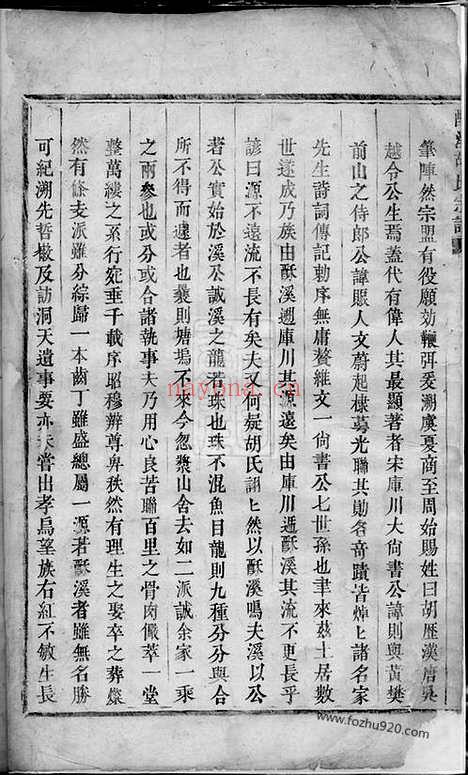 筆陣然宗盟有役願効鞭弭爰溯虞夏商至周始賜姓曰胡歷漢唐吳
越今公生焉蓋代有偉人其最顯著者宋庫川大尚書公諱則與黃樊
前山之侍郎公諱賬人文蔚起棣萼光聯其勛名竒蹟皆焯匕諸名家
先生詩詞傳記勅序無庸贅維文一尚書公七世孫也聿來茲土居數
世遂成乃族由酥溪遡庫川其源遠矣由庫川遁酥溪其流不更長乎
諺曰源不遠流不長有矣夫又何疑胡氏詡匕然以酥溪鳴夫溪以公
著公實始於溪公誠溪之龍若珠也珠不混魚目龍則九種分分與合
所不得而逾者也曩則塘塢不來今忽漿山舍去如二派誠余家一乘
之兩參也或分或合諸執事夫乃用心良苦聯百里之骨肉儼萃一堂
整萬縷之系行宛垂千載序昭穆辨尊卑秩然有理生之娶卒之葬燦
然有條支派雖分綜歸一本齒丁雖盛總屬一源若酥溪者雖無名勝
可紀溯先哲檄及訪洞天遺事要亦未嘗出孝烏望族右紅不敏生長
nayona.cn
www.fozhu920.com